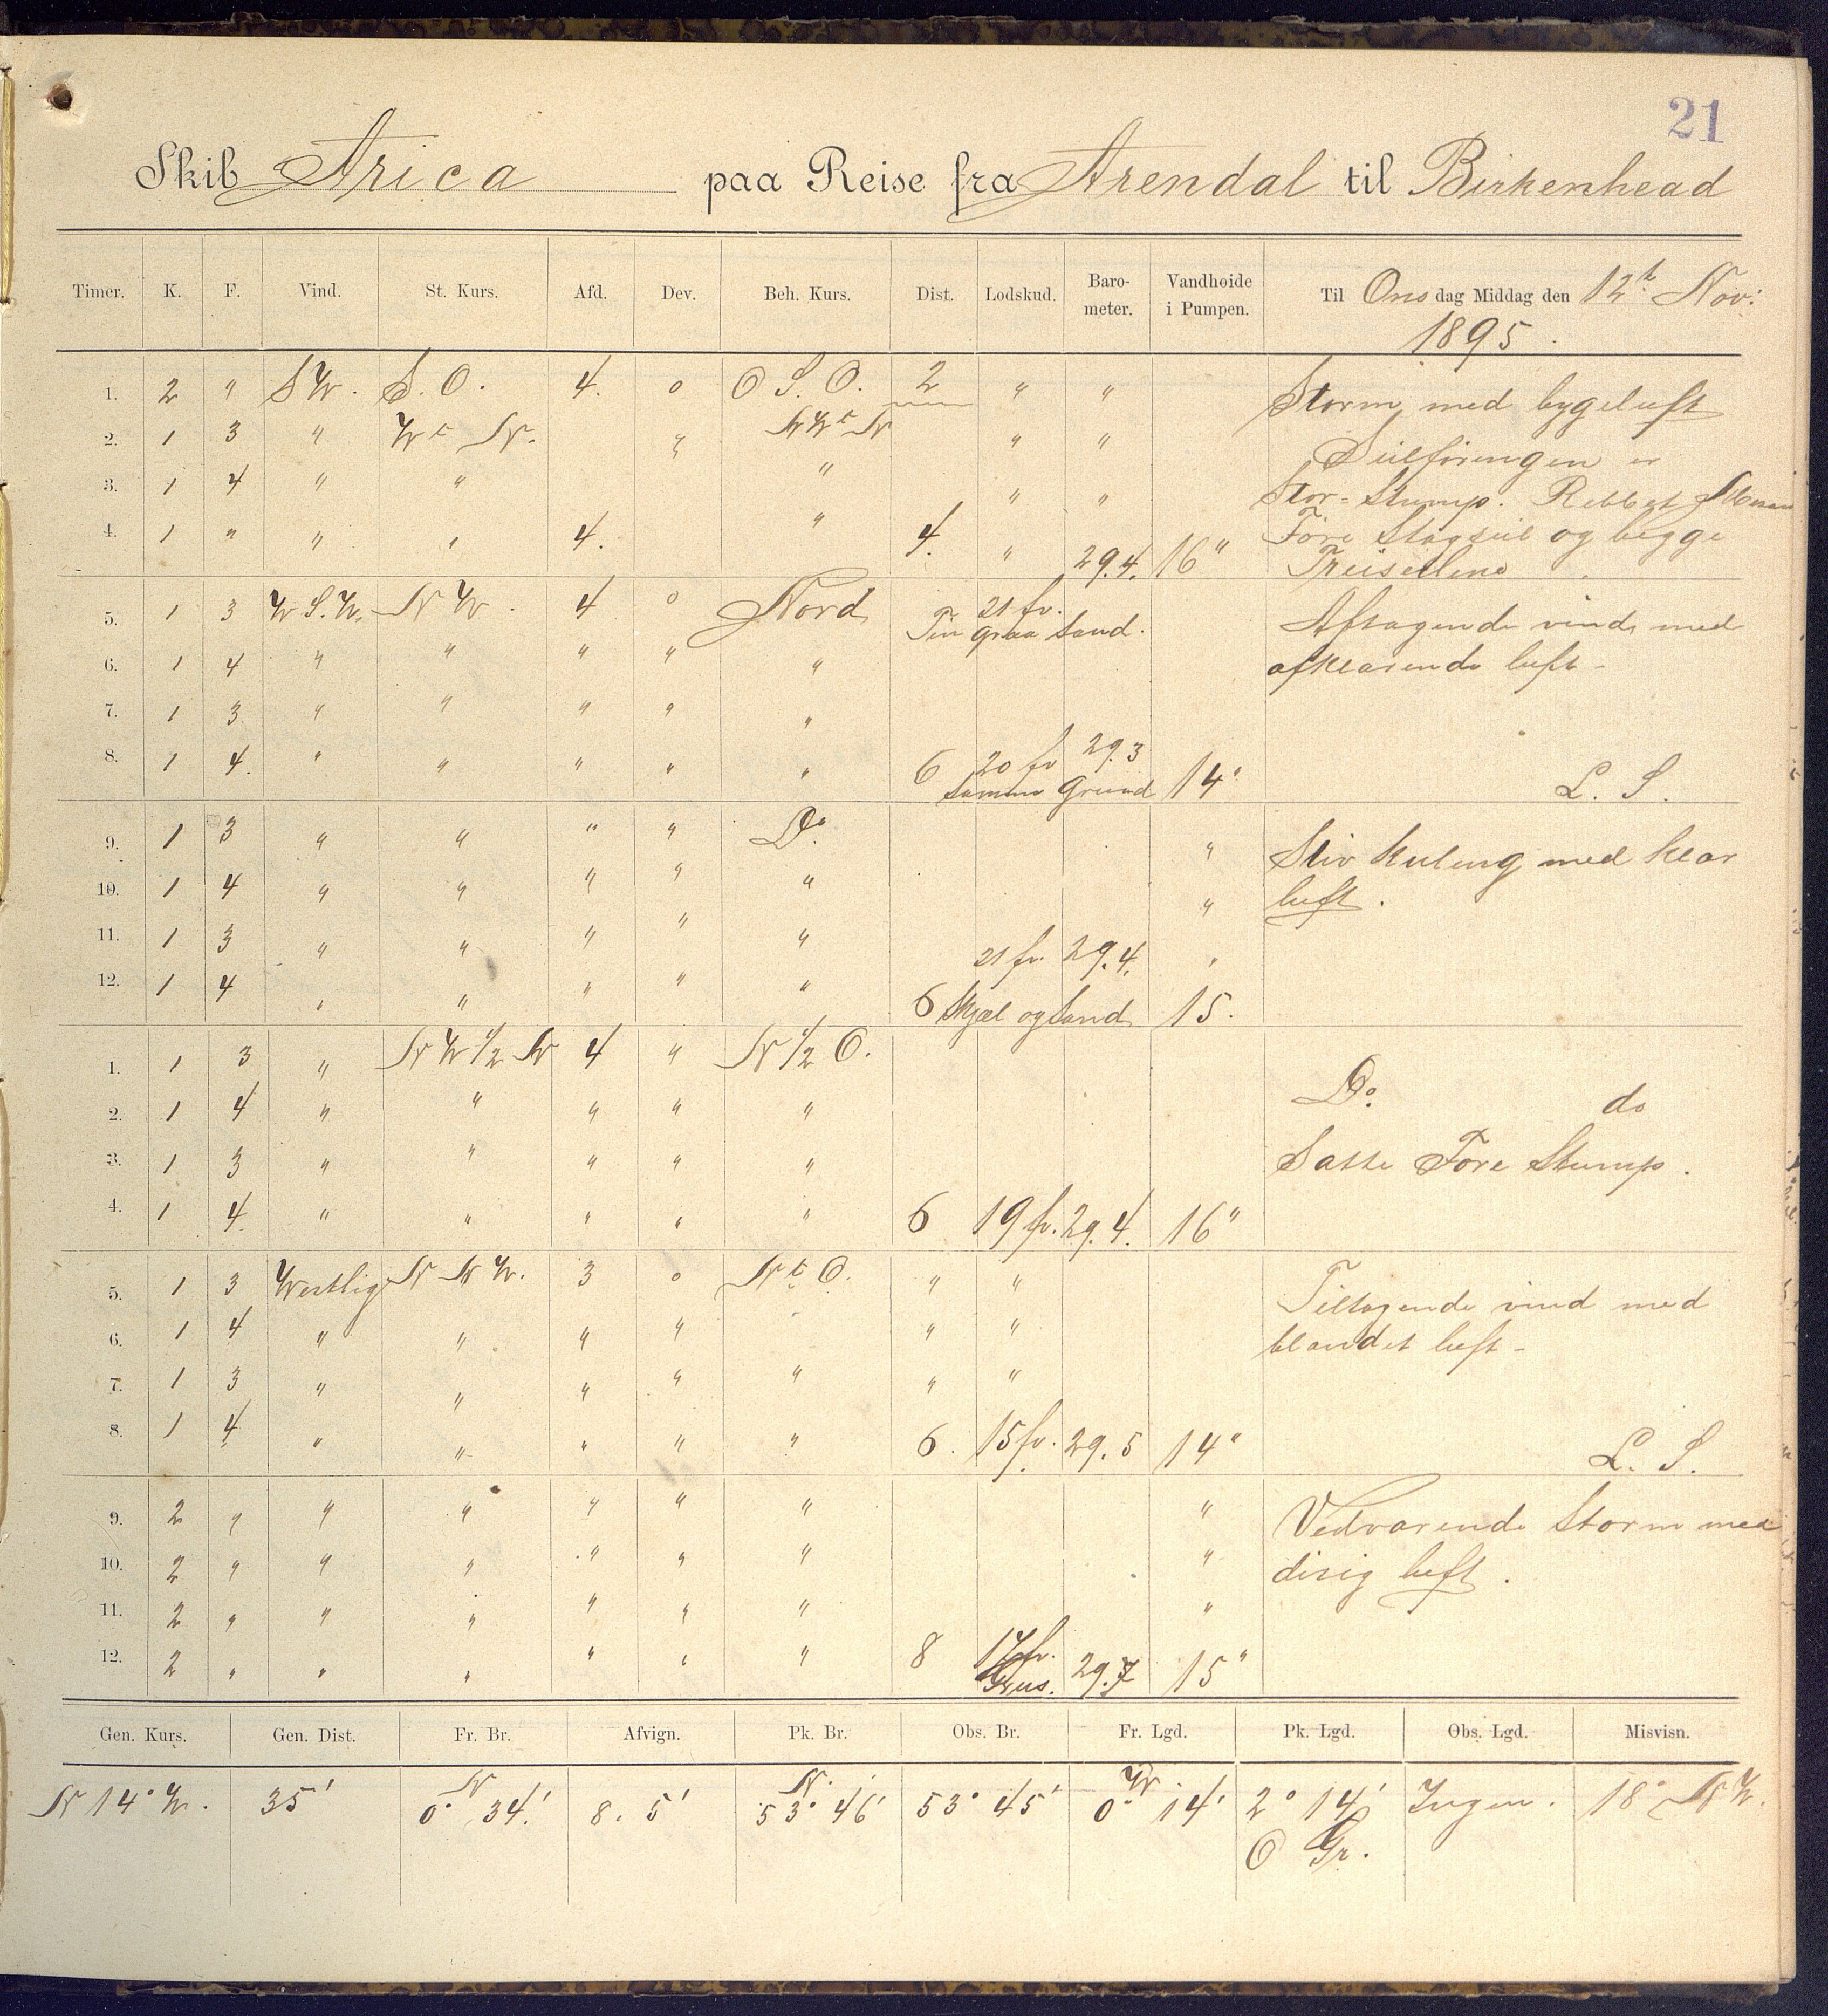 21
Skib Arica paa Reise fra Arendal til Birkenhead
Timer. K. F. Vind. St. Kurs. Afd. Dev. Beh. Kurs. Dist. Lodskud. Baro-meter. Vandhøide i Pumpen. Til Onsdag Middag den 12te Nov: 1895.
1. 2 " SW. S.O. 4. 0 O S.O. 2 " " Storm med bygeluft
2. 1 3 " Wt N. " NWtN " " Seilføringen er
3. 1 4 " " " " " Stor-Stump. Rebbet Mesan
4. 1 " " " 4. " 4. " 29.4. 16" Fore Stagseil og begge
Treiseilene
5. 1 3 W S.W. N W. 4 0 Nord 21 fv. Aftagende vind med
Fin graa Sand.
6. 1 4 " " " " " afklarende luft -
7. 1 3 " " " " "
8. 1 4. " " " " " 6 20 fv 29.3 14" L. S.
Samme Grund
9. 1 3 " " " " Do " Stiv Kuling med klar
10. 1 4 " " " " " " luft.
11. 1 3 " " " " " 21 fv. 29.4. "
12. 1 4 " " " " " 6 Skjæl og Sand 15.
1. 1 3 " N W 1/2 N 4 " N 1/2 O.
2. 1 4 " " " " " Do. do
3. 1 3 " " " " " Satte Fore Stump.
4. 1 4 " " " " " 6 19 fv. 29.4. 16"
5. 1 3 Westlig N N W. 3 0 N t O. " " Tiltagende vind med
6. 1 4 " " " " " " blandet luft -
7. 1 3 " " " " " " "
8. 1 4 " " " " " 6. 15 fv. 29.5 14" L. S.
9. 2 " " " " " " " Vedvarende Storm med
10. 2 " " " " " " " disig luft.
11. 2 " " " " " " "
12. 2 " " " " " " 8 17 fv. 29.7 15"
Grus.
Gen. Kurs. Gen. Dist. Fr. Br. Afvign. Pk. Br. Obs. Br. Fr. Lgd. Pk. Lgd. Obs. Lgd. Misvisn.
N 14° W. 35' N 0° 34.' 8. 5' N. 53° 46' 53° 45' W 0° 14' 2° 14' Ingen. 18° N W.
O Gr.